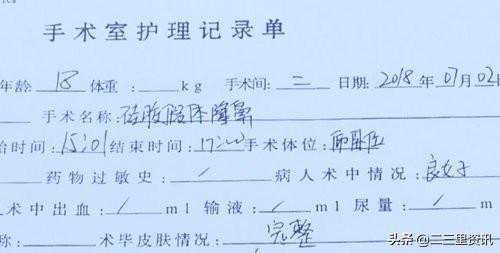 手术室护理记录单
年龄: 18 体重: kg 手术间: 二 日期: 2018 年 07 月 02
手术名称: 硅胶假体隆鼻
始时间: 15:01 结束时间: 17:00 手术体位: 仰卧位
药物过敏史: / 病人术中情况: 良好
术中出血: / ml 输液: / ml 尿量: / m
称: 术毕皮肤情况: 完整
头条@二三里资讯